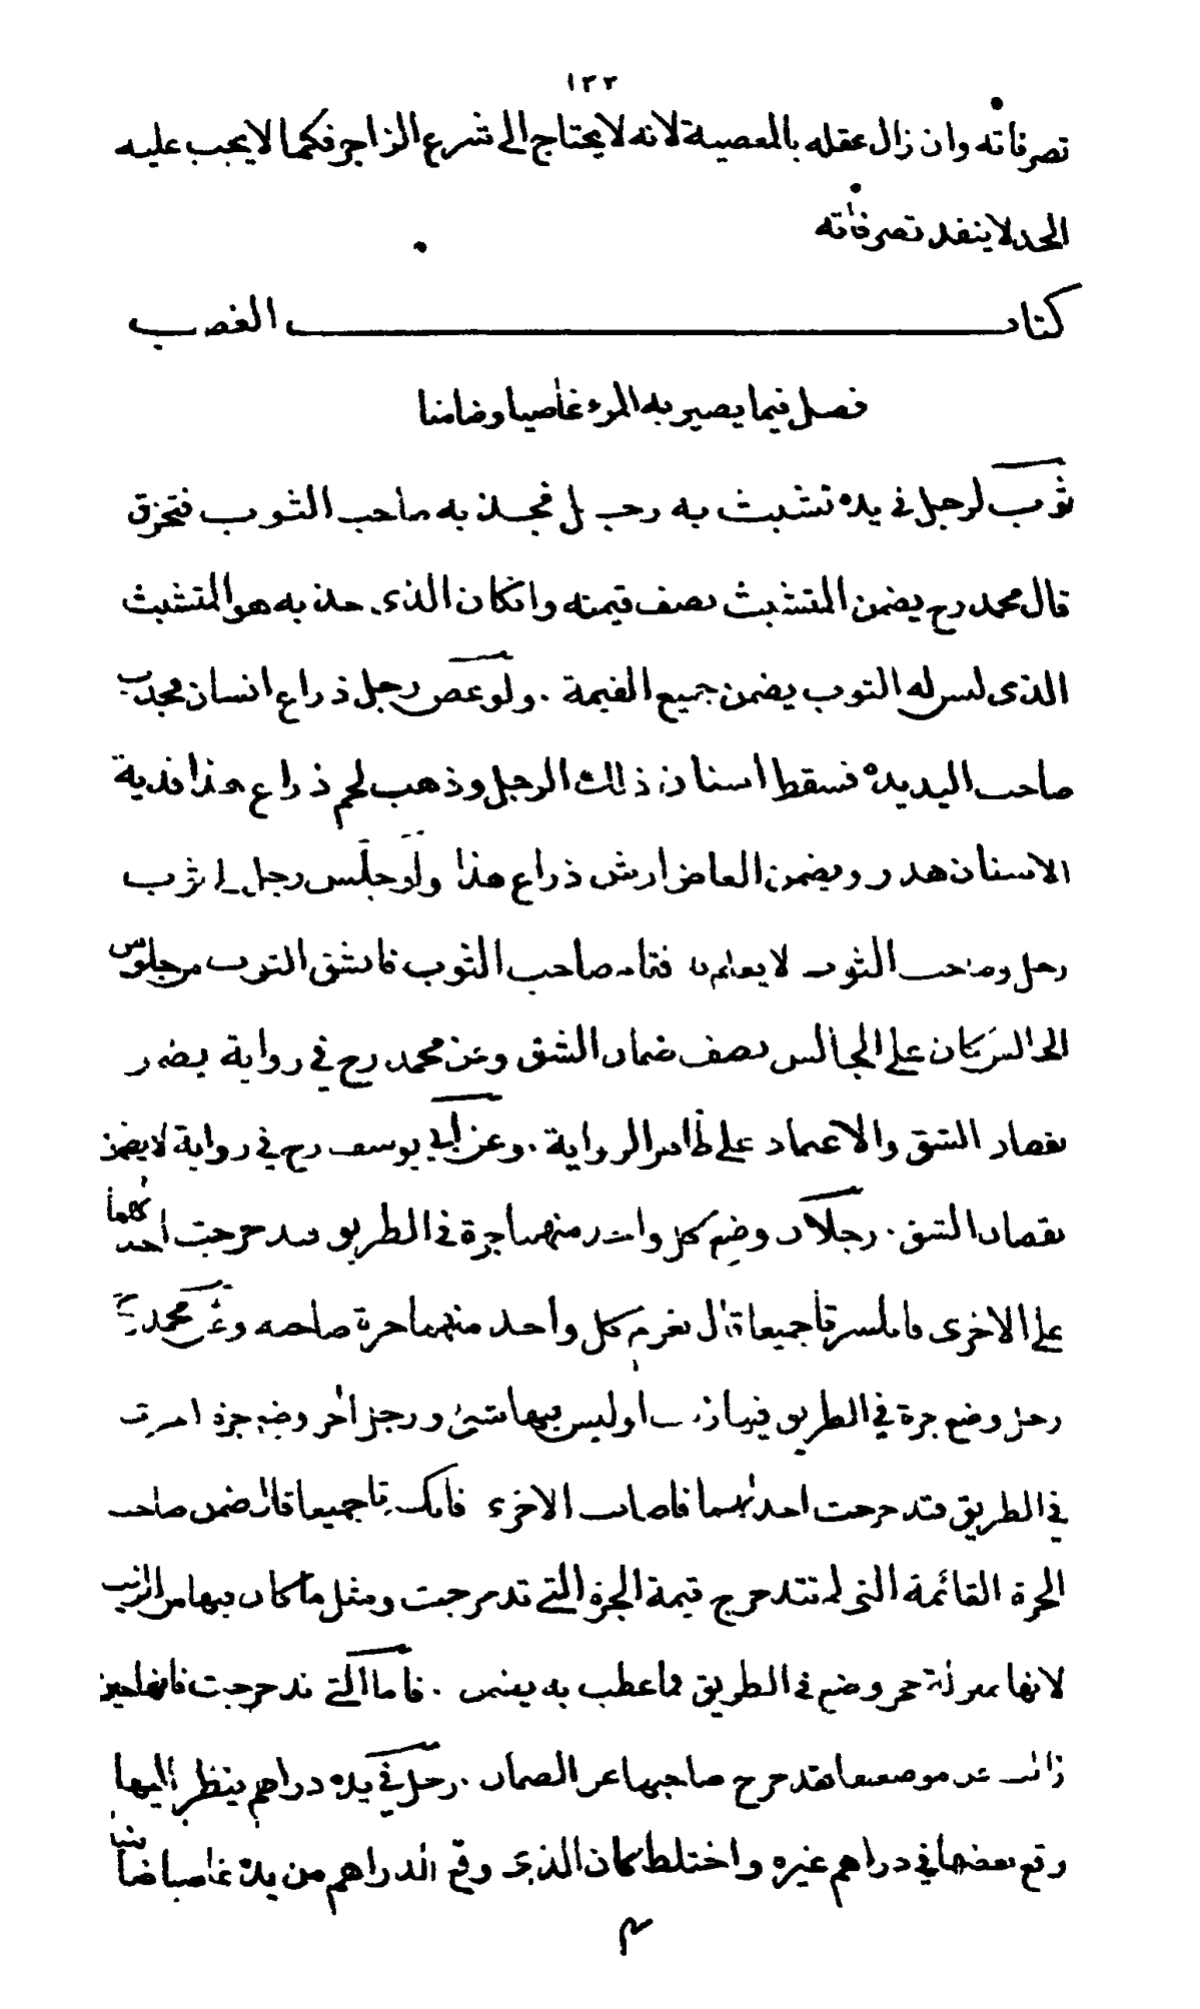 ١٣٣
تصرفاته وان زال عقله بالمعصية لانه لا يحتاج الى شرع الزاجر فكما لا يجب عليه
الحد لا ينفد تصرفاته
كتاب الغصب
فصل فيما يصير به المرء غاصبا وضامنا
ثوب لرجل في يده تشبث به رجل فجذبه صاحب الثوب فتخرق
قال محمد رح يضمن المتشبث نصف قيمته وانكان الذى جذبه هو المتشبث
الذى ليس له الثوب يضمن جميع القيمة . ولو عض رجل ذراع انسان فجذب
صاحب اليد يده فسقط اسنان ذلك الرجل وذهب لحم ذراع هذا فدية
الاسنان هدر ويضمن العاض ارش ذراع هذا ولو جلس رجل على ثوب
رجل وصاحب الثوب لا يعلم به فقام صاحب الثوب فانشق الثوب من جلوس
الجالس كان على الجالس نصف ضمان الشق وعن محمد رح في رواية يضمن
نقصان الشق والاعتماد على ظاهر الرواية . وعن ابي يوسف رح في رواية لا يضمن
نقصان الشق . رجلان وضع كل واحد منهما جرة في الطريق فتدحرجت احدهما
على الاخرى فانكسرتا جميعا قال يغرم كل واحد منهما جرة صاحبه وعن محمد رح
رجل وضع جرة في الطريق فيها زيت اوليس فيها شئ ورجل اخر وضع جرة اخرى
في الطريق فتدحرجت احدٰيهما فاصاب الاخرى فانكسرتا جميعا قال ضمن صاحب
الجرة القائمة التى لم تتدحرج قيمة الجرة التى تدحرجت ومثل ما كان فيها من الزيت
لانها بمنزلة حجر وضع في الطريق فما عطب به يضمن . فاما التى تدحرجت فانها حين
زالت عن موضعها فقد خرج صاحبها عن الضمان . رجل في يده دراهم ينظر اليها
وقع بعضها في دراهم غيره واختلط كان الذى وقع الدراهم من يده غاصبا ضامنا